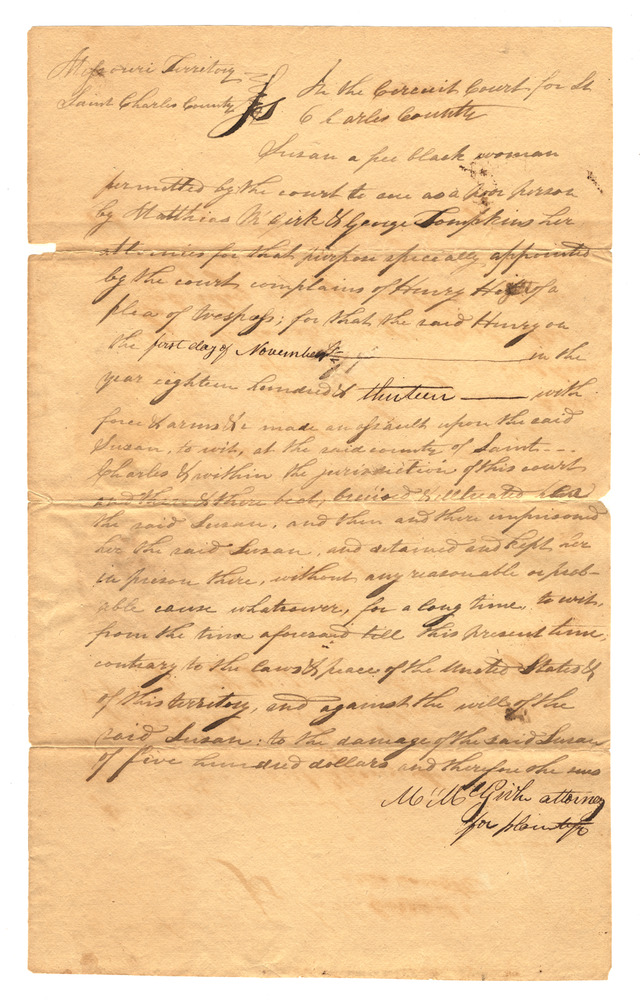 Missouri Territory
Saint Charles County Ss In the Circuit Court for St
Charles County
Susan a free black woman
permitted by the court to sue as a poor person
by Matthias McGirk & George Tompkins her
attornies for that purpose specially appointed
by the court, complains of Henry of a
plea of trespass; for that the said Henry on
the first day of November in the
year eighteen hundred & thirteen with
force & arms &c made an assault upon the said
Susan, to wit, at the said county of Saint
Charles & within the jurisdiction of this court
and then & there beat, bruised & illtreated her
the said Susan, and then and there imprisoned
her the said Susan, and detained and kept her
in prison there, without any reasonable or prob-
able cause whatsoever, for a long time, to wit,
from the time aforesaid till this present time,
contrary to the laws & peace of the United States &
of this territory, and against the will of the
said Susan: to the damage of the said Susan
of five hundred dollars and therefore she sues
M McGirk attorney
for plaintiff